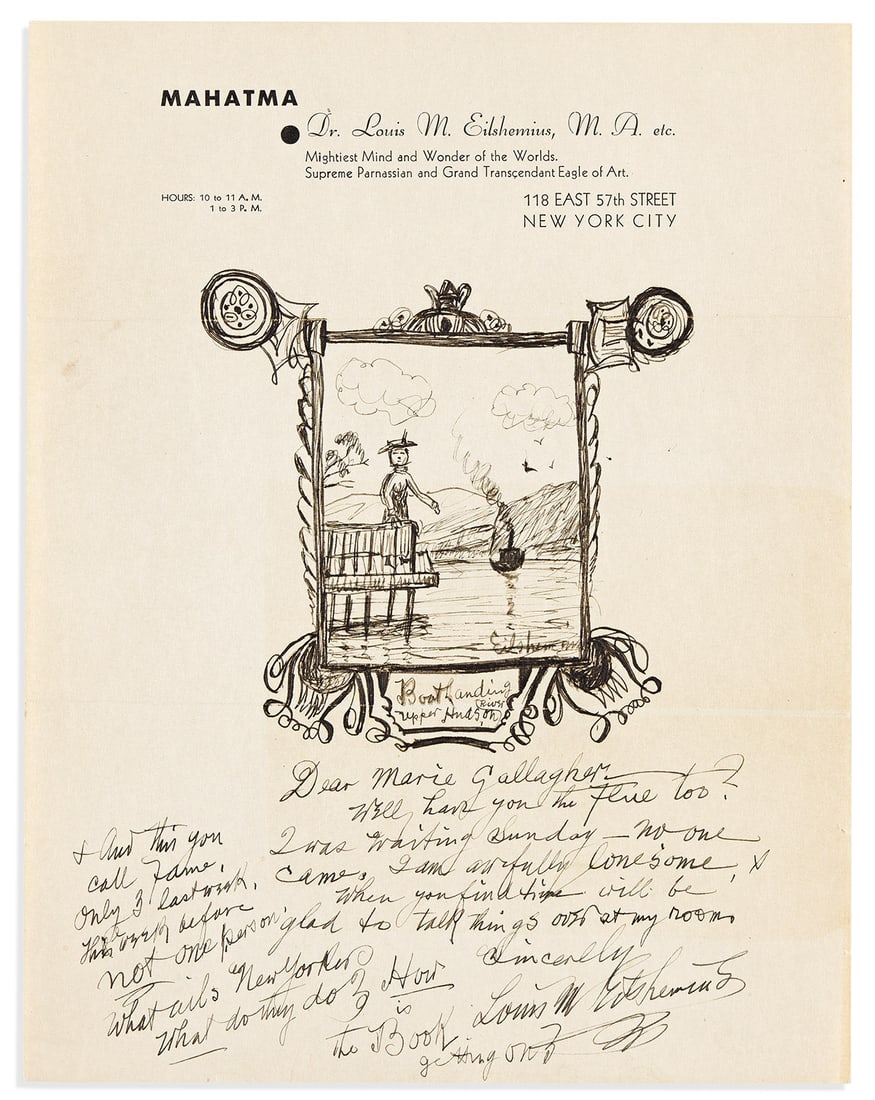 MAHATMA
Dr. Louis M. Eilshemius, M. A. etc.
Mightiest Mind and Wonder of the Worlds.
Supreme Parnassian and Grand Transcendant Eagle of Art.
HOURS: 10 to 11 A. M.
1 to 3 P. M.
118 EAST 57th STREET
NEW YORK CITY
Eilshemius
Boat Landing
upper Hudson River
Dear Marie Gallagher
Well, have you the flue too?
I was waiting Sunday — no one
came. I am awfully lonesome, x
When you find time will be
glad to talk things over at my room.
Sincerely
Louis M Eilshemius
x And this you
call Fame.
Only 3 last week,
This week before
not one person.
What ails New Yorkers
What do they do?
How
is
the Book
getting on?